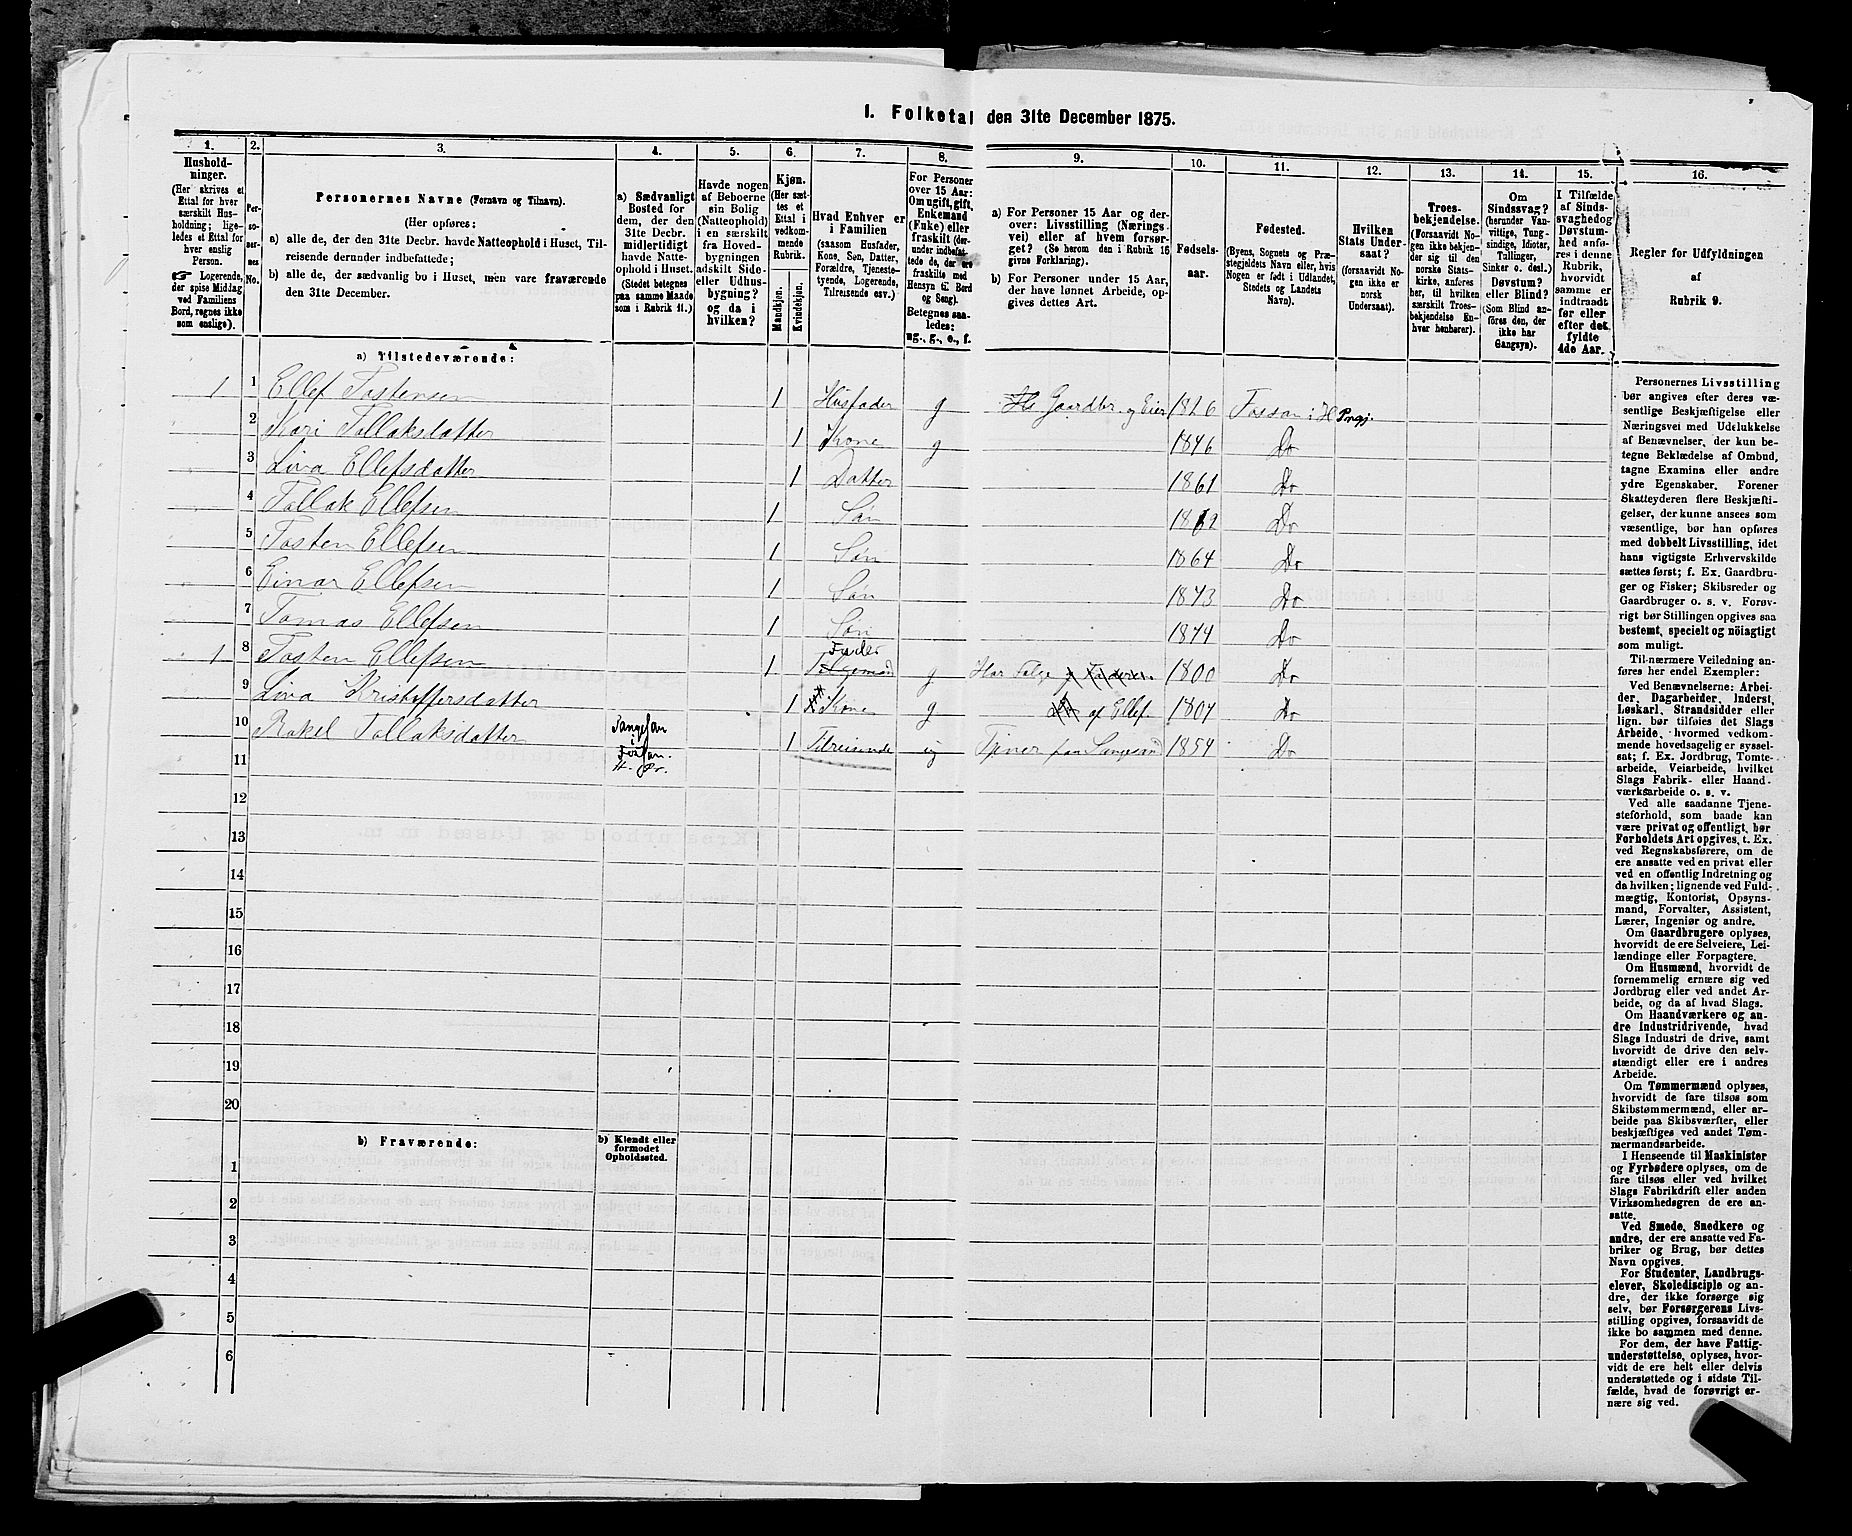 1. Folketal den 31te December 1875.
1.
Hushold-
ninger.
(Her skrives et
Ettal for hver
særskilt Hus-
holdning; lige-
ledes et Ettal for
hver enslig
Person.
☞ Logerende,
der spise Middag
ved Familiens
Bord, regnes ikke
som enslige).
2.
Per-
so-
ner-
nes
No.
3.
Personernes Navne (Fornavn og Tilnavn).
(Her opføres:
a) alle de, der den 31te Decbr. havde Natteophold i Huset, Til-
reisende derunder indbefattede;
b) alle de, der sædvanlig bo i Huset, men vare fraværende
den 31te December.
4.
a) Sædvanligt
Bosted for
dem, der den
31te Decbr.
midlertidigt
havde Natte-
ophold i Huset.
(Stedet betegnes
paa samme Maade
som i Rubrik 11.)
5.
Havde nogen
af Beboerne
sin Bolig
(Natteophold)
i en særskilt
fra Hoved-
bygningen
adskilt Side-
eller Udhus-
bygning?
og da i
hvilken?
6.
Kjøn.
(Her sæt-
tes et
Ettal i
vedkom-
mende
Rubrik.
Mandkjøn.
Kvindekjøn.
7.
Hvad Enhver er
i Familien
(saasom Husfader,
Kone, Søn, Datter,
Forældre, Tjeneste-
tyende, Logerende,
Tilreisende osv.)
8.
For Personer
over 15 Aar:
Om ugift, gift,
Enkemand
(Enke) eller
fraskilt (der-
under indbefat-
tede de, der ere
fraskilte med
Hensyn til Bord
og Seng).
Betegnes saa-
ledes:
ug., g., e., f.
9.
a) For Personer 15 Aar og der-
over: Livsstilling (Nærings-
vei) eller af hvem forsør-
get? (Se herom den i Rubrik 16
givne Forklaring).
b) For Personer under 15 Aar,
der have lønnet Arbeide, op-
gives dettes Art.
10.
Fødsels-
aar.
11.
Fødested.
(Byens, Sognets og Præ-
stegjeldets Navn eller, hvis
Nogen er født i Udlandet,
Stedets og Landets
Navn).
12.
Hvilken
Stats Under-
saat?
(forsaavidt No-
gen ikke er
norsk
Undersaat).
13.
Troes-
bekjendelse.
(Forsaavidt No-
gen ikke bekjen-
der sig til den
norske Stats-
kirke, anføres
her, til hvilken
særskilt Troes-
bekjendelse En-
hver henhører).
14.
Om
Sindssvag?
(herunder Van-
vittige, Tung-
sindige, Idioter,
Tullinger,
Sinker o. desl.)
Døvstum?
eller Blind?
(Som Blind an-
føres den, der
ikke har
Gangsyn).
15.
I Tilfælde
af Sinds-
svaghed og
Døvstum-
hed anfø-
res i denne
Rubrik,
hvorvidt
samme er
indtraadt
før eller
efter det
fyldte
4de Aar.
16.
Regler for Udfyldningen
af
Rubrik 9.
a) Tilstedeværende:
1 1 Ellef Tostensen 1 Husfader g Gaardbr. og Eier 1826 Fossan i H Prgj.
2 Kari Tallaksdatter 1 Kone g 1846 Do
3 Liva Ellefsdatter 1 Datter 1861 Do
4 Tallak Ellefsen 1 Søn 1862 Do
5 Tosten Ellefsen 1 Søn 1864 Do
6 Einar Ellefsen 1 Søn 1873 Do
7 Tomas Ellefsen 1 Søn 1874 Do
Fader
1 8 Tosten Ellefsen 1 g Har Følge 1800 Do
9 Liva Kristoffersdatter 1 Kone g af Ellef 1804 Do
10 Rakel Tallaksdatter 1 Tilreisende ug 1854 Do
i
11
12
13
14
15
16
17
18
19
20
b) Fraværende:
b) Kjendt eller
formodet
Opholdssted.
1
2
3
4
5
6
Personernes Livsstilling
bør angives efter deres væ-
sentlige Beskjæftigelse eller
Næringsvei med Udelukkelse
af Benævnelser, der kun be-
tegne Beklædelse af Ombud,
tagne Examina eller andre
ydre Egenskaber. Forener
Skatteyderen flere Beskjæfti-
gelser, der kunne ansees som
væsentlige, bør han opføres
med dobbelt Livsstilling, idet
hans vigtigste Erhvervskilde
sættes først; f. Ex. Gaardbru-
ger og Fisker; Skibsreder og
Gaardbruger o. s. v. Forøv-
rigt bør Stillingen opgives saa
bestemt, specielt og nöiagtigt
som muligt.
Til nærmere Veiledning an-
føres her endel Exempler:
Ved Benævnelserne: Arbei-
der, Dagarbeider, Inderst,
Løskarl, Strandsidder eller
lign. bør tilføies det Slags
Arbeide, hvormed vedkom-
mende hovedsagelig er syssel-
sat; f. Ex. Jordbrug, Tomte-
arbeide, Veiarbeide, hvilket
Slags Fabrik- eller Haand-
værksarbeide o. s. v.
Ved alle saadanne Tjene-
steforhold, som baade kan
være privat og offentligt, bør
Forholdets Art opgives, t. Ex.
ved Regnskabsførere, om de
ere ansatte ved en privat eller
ved en offentlig Indretning og
da hvilken; lignende ved Fuld-
mægtig, Kontorist, Opsyns-
mand, Forvalter, Assistent,
Lærer, Ingeniør og andre.
Om Gaardbrugere oplyses,
hvorvidt de ere Selveiere, Lei-
lændinge eller Forpagtere.
Om Husmænd, hvorvidt de
fornemmelig ernære sig ved
Jordbrug eller ved andet Ar-
beide, og da af hvad Slags.
Om Haandværkere og an-
dre Industridrivende, hvad
Slags Industri de drive, samt
hvorvidt de drive den selv-
stændigt eller ere i andres
Arbeide.
Om Tømmermænd oplyses,
hvorvidt de fare tilsøs som
Skibstømmermænd, eller ar-
beide paa Skibsværfter, eller
beskjæftiges ved andet Tøm-
mermandsarbeide.
I Henseende til Maskinister
og Fyrbødere oplyses, om de
fare tilsøs eller ved hvilket
Slags Fabrikdrift eller anden
Virksomhedsgren de ere an-
satte.
Ved Smede, Snedkere og
andre, der ere ansatte ved Fa-
briker og Brug, bør dettes
Navn opgives.
For Studenter, Landbrugs-
elever, Skoledisciple og an-
dre, der ikke forsørge sig
selv, bør Forsørgerens Livs-
stilling opgives, forsaavidt de
ikke bo sammen med denne.
For dem, der have Fattig-
understøttelse, oplyses, hvor-
vidt de ere helt eller delvis
understøttede og i sidste Til-
fælde, hvad de forøvrigt er-
nære sig ved.